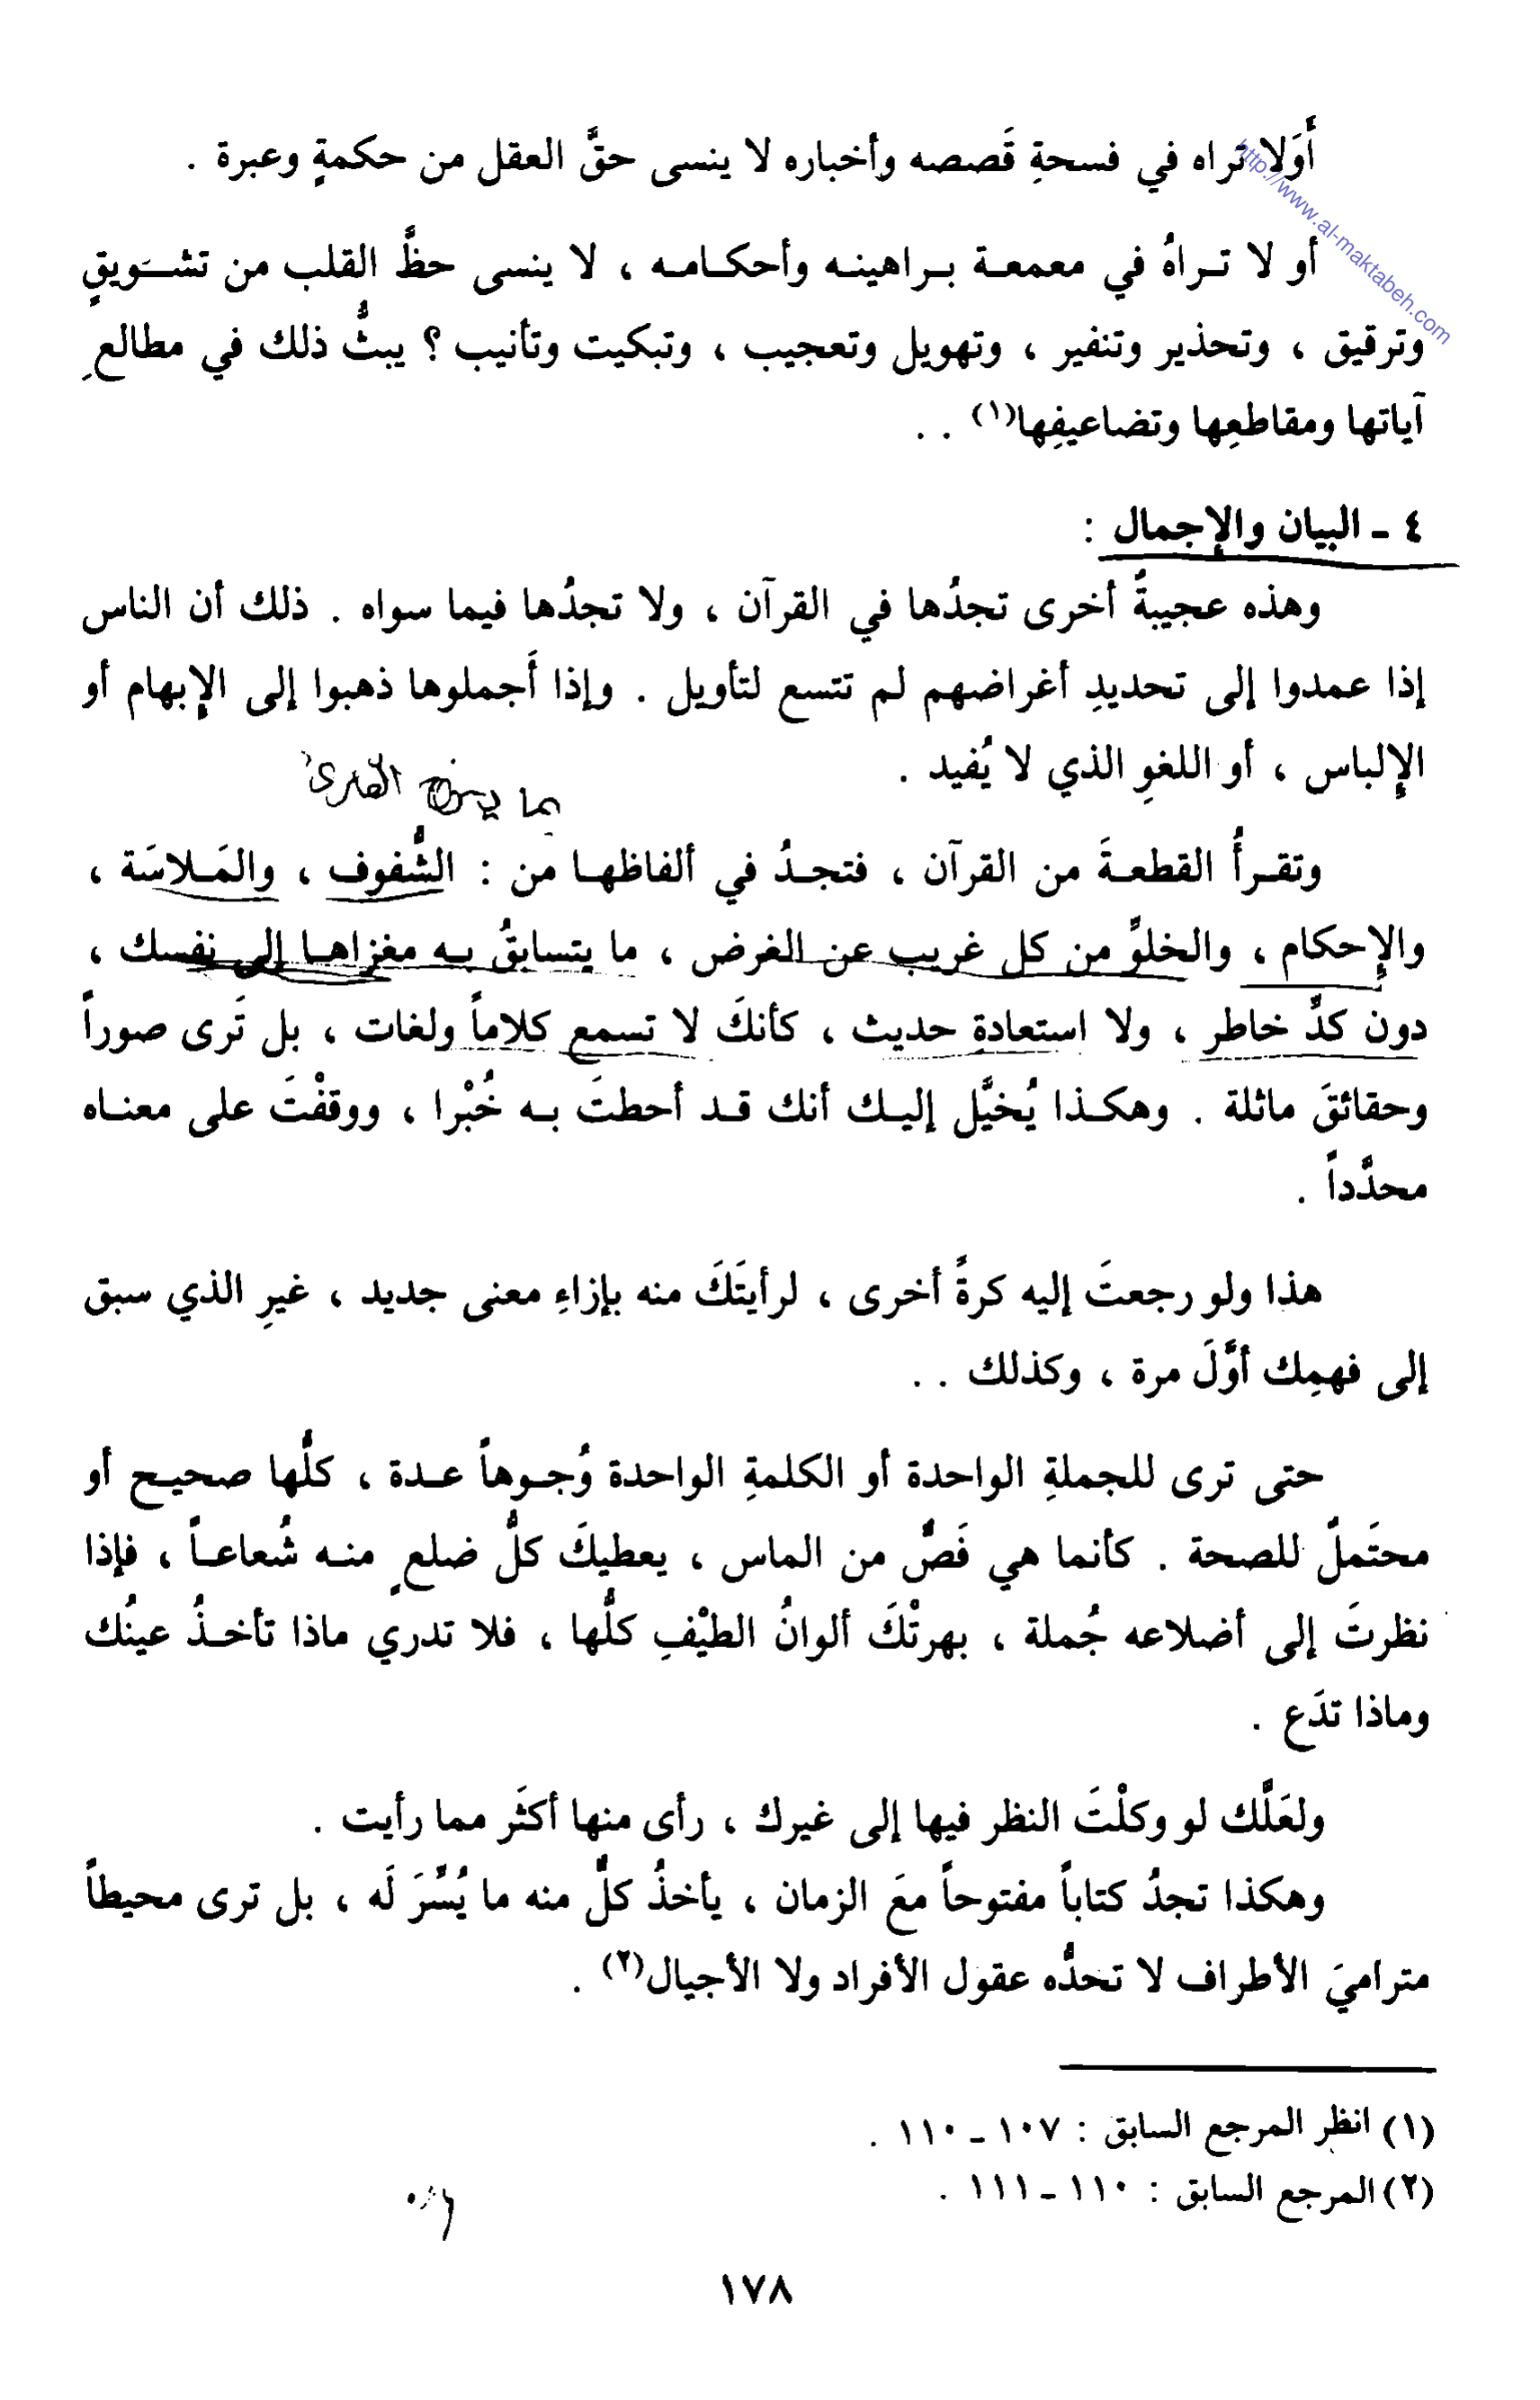 أَوَلا تراه في فسحةِ قَصصه وأخباره لا ينسى حقَّ العقل من حكمةٍ وعبرة .
http://www.al-maktabeh.com
أو لا تـراهُ في معمعـة بـراهينـه وأحكـامـه ، لا ينسى حظَّ القلب من تشـَويقٍ
وترقيق ، وتحذير وتنفير ، وتهويل وتعجيب ، وتبكيت وتأنيب ؟ يبثُّ ذلك في مطالعِ
آياتها ومقاطعِها وتضاعيفِها(١) . .
٤ ـ البيان والإجمال :
وهذه عجيبةٌ أخرى تجدُها في القرآن ، ولا تجدُها فيما سواه . ذلك أن الناس
إذا عمدوا إلى تحديدِ أغراضهم لم تتسع لتأويل . وإذا أَجملوها ذهبوا إلى الإبهام أو
الإلباس ، أو اللغوِ الذي لا يُفيد .
وتقـرأُ القطعـةَ من القرآن ، فتجـدُ في ألفاظهـا من : الشُّفوف ، والمَـلاسَة ،
والإحكام ، والخلوِّ من كل غريب عن الغرض ، ما يتسابقُ بـه مغزاهـا إلى نفسك ،
دون كدِّ خاطر ، ولا استعادةِ حديث ، كأنكَ لا تسمع كلاماً ولغات ، بل تَرى صوراً
وحقائقَ ماثلة . وهكـذا يُخيَّل إليـك أنك قـد أحطتَ بـه خُبْرا ، ووقفْتَ على معنـاه
محدَّداً .
هذا ولو رجعتَ إليه كرةً أخرى ، لرأيتَكَ منه بإزاءِ معنى جديد ، غيرِ الذي سبق
إلى فهمِك أوَّلَ مرة ، وكذلك . .
حتى ترى للجملةِ الواحدة أو الكلمةِ الواحدة وُجـوهاً عـدة ، كلُّها صحيـح أو
محتَملٌ للصحة . كأنما هي فَصٌّ من الماس ، يعطيكَ كلُّ ضلعٍ منـه شُعاعـاً ، فإذا
نظرتَ إلى أضلاعه جُملة ، بهرتْكَ ألوانُ الطيْفِ كلُّها ، فلا تدري ماذا تأخـذُ عينُك
وماذا تدَع .
ولعَلَّك لو وكلْتَ النظر فيها إلى غيرك ، رأى منها أكثَر مما رأيت .
وهكذا تجدُ كتاباً مفتوحاً معَ الزمان ، يأخذُ كلٌّ منه ما يُسِّرَ لَه ، بل ترى محيطاً
متراميَ الأطراف لا تحدُّه عقول الأفراد ولا الأجيال(٢) .
(١) انظر المرجع السابق : ١٠٧ ـ ١١٠ .
(٢) المرجع السابق : ١١٠ ـ ١١١ .
١٧٨